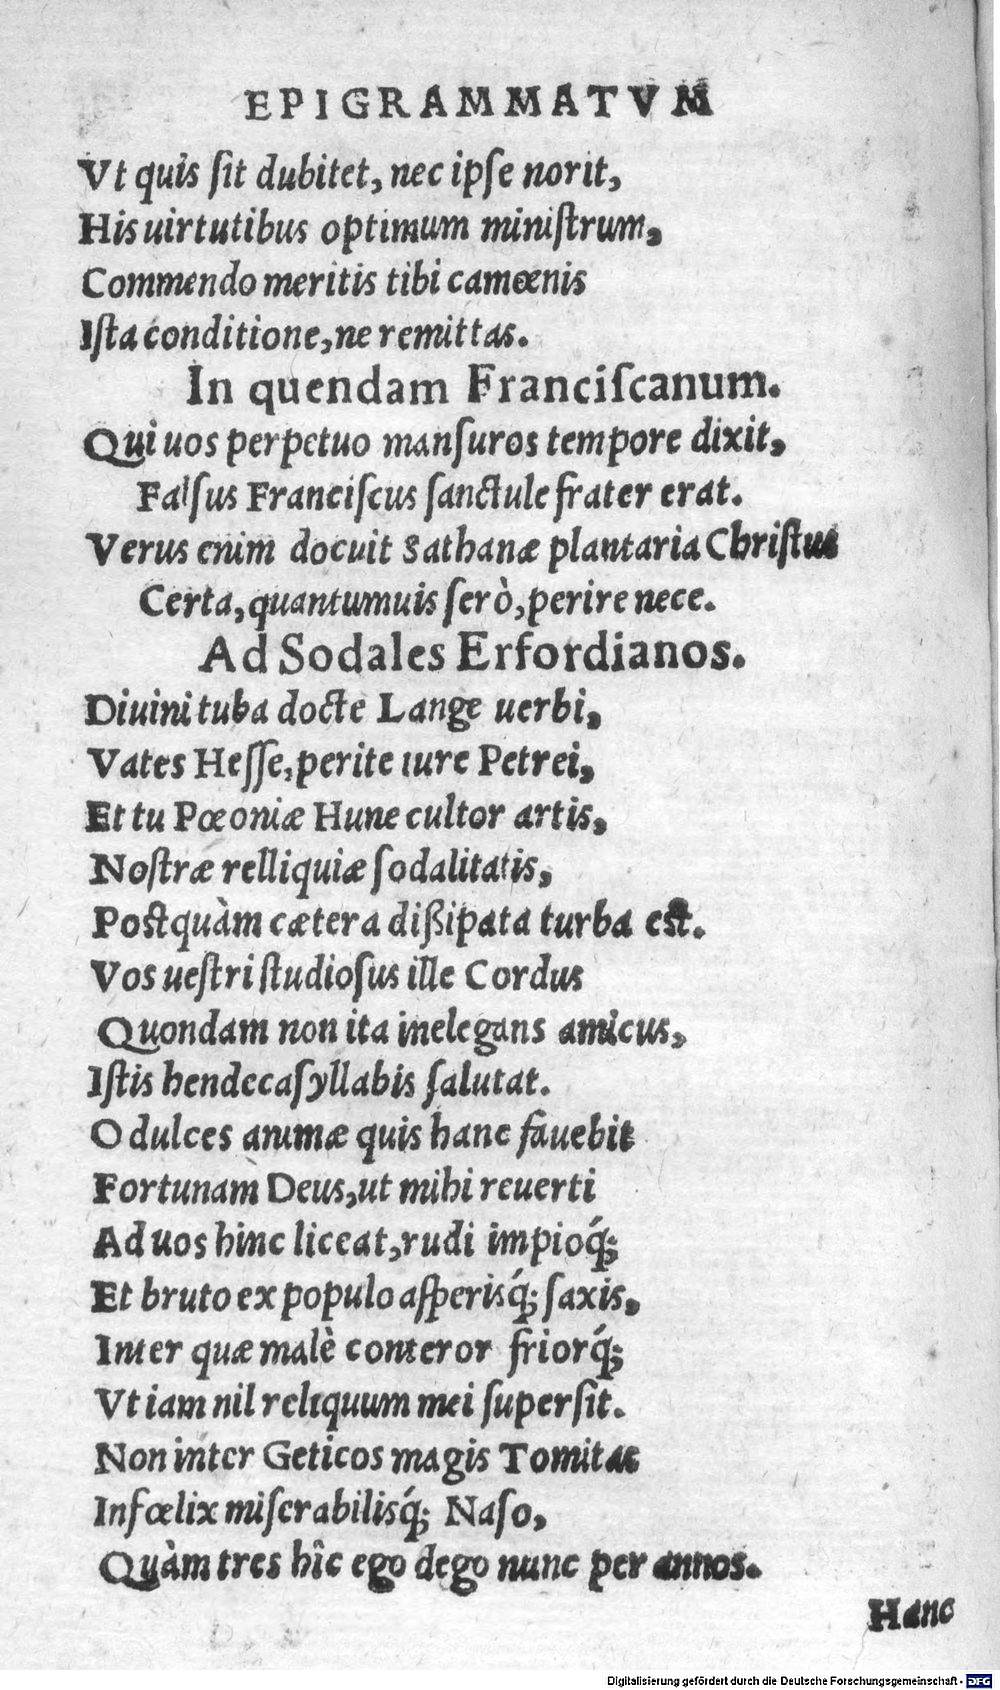 EPIGRAMMATVM
Vt quis ſit dubitet, nec ipſe norit,
His uirtutibus optimum miniſtrum,
Commendo meritis tibi camœnis
Iſta conditione, ne remittas.
In quendam Franciſcanum.
Qui uos perpetuo manſuros tempore dixit,
Falſus Franciſcus ſanctule frater erat.
Verus enim docuit Sathanæ plantaria Chriſtus
Certa, quantumuis ſerò, perire nece.
Ad Sodales Erfordianos.
Diuini tuba docte Lange uerbi,
Vates Heſſe, perite iure Petrei,
Et tu Pœoniæ Hune cultor artis,
Noſtræ relliquiæ ſodalitatis,
Poſtquàm cætera dißipata turba eſt.
Vos ueſtri ſtudioſus ille Cordus
Quondam non ita inelegans amicus,
Iſtis hendecaſyllabis ſalutat.
O dulces animæ quis hanc fauebit
Fortunam Deus, ut mihi reuerti
Ad uos hinc liceat, rudi impioq́;
Et bruto ex populo aſperisq́; ſaxis,
Inter quæ malè conteror friorq́;
Vt iam nil reliquum mei ſuperſit.
Non inter Geticos magis Tomitas
Infœlix miſerabilisq́; Naſo,
Quàm tres hîc ego dego nunc per annos.
Hanc
Digitalisierung gefördert durch die Deutsche Forschungsgemeinschaft - DFG